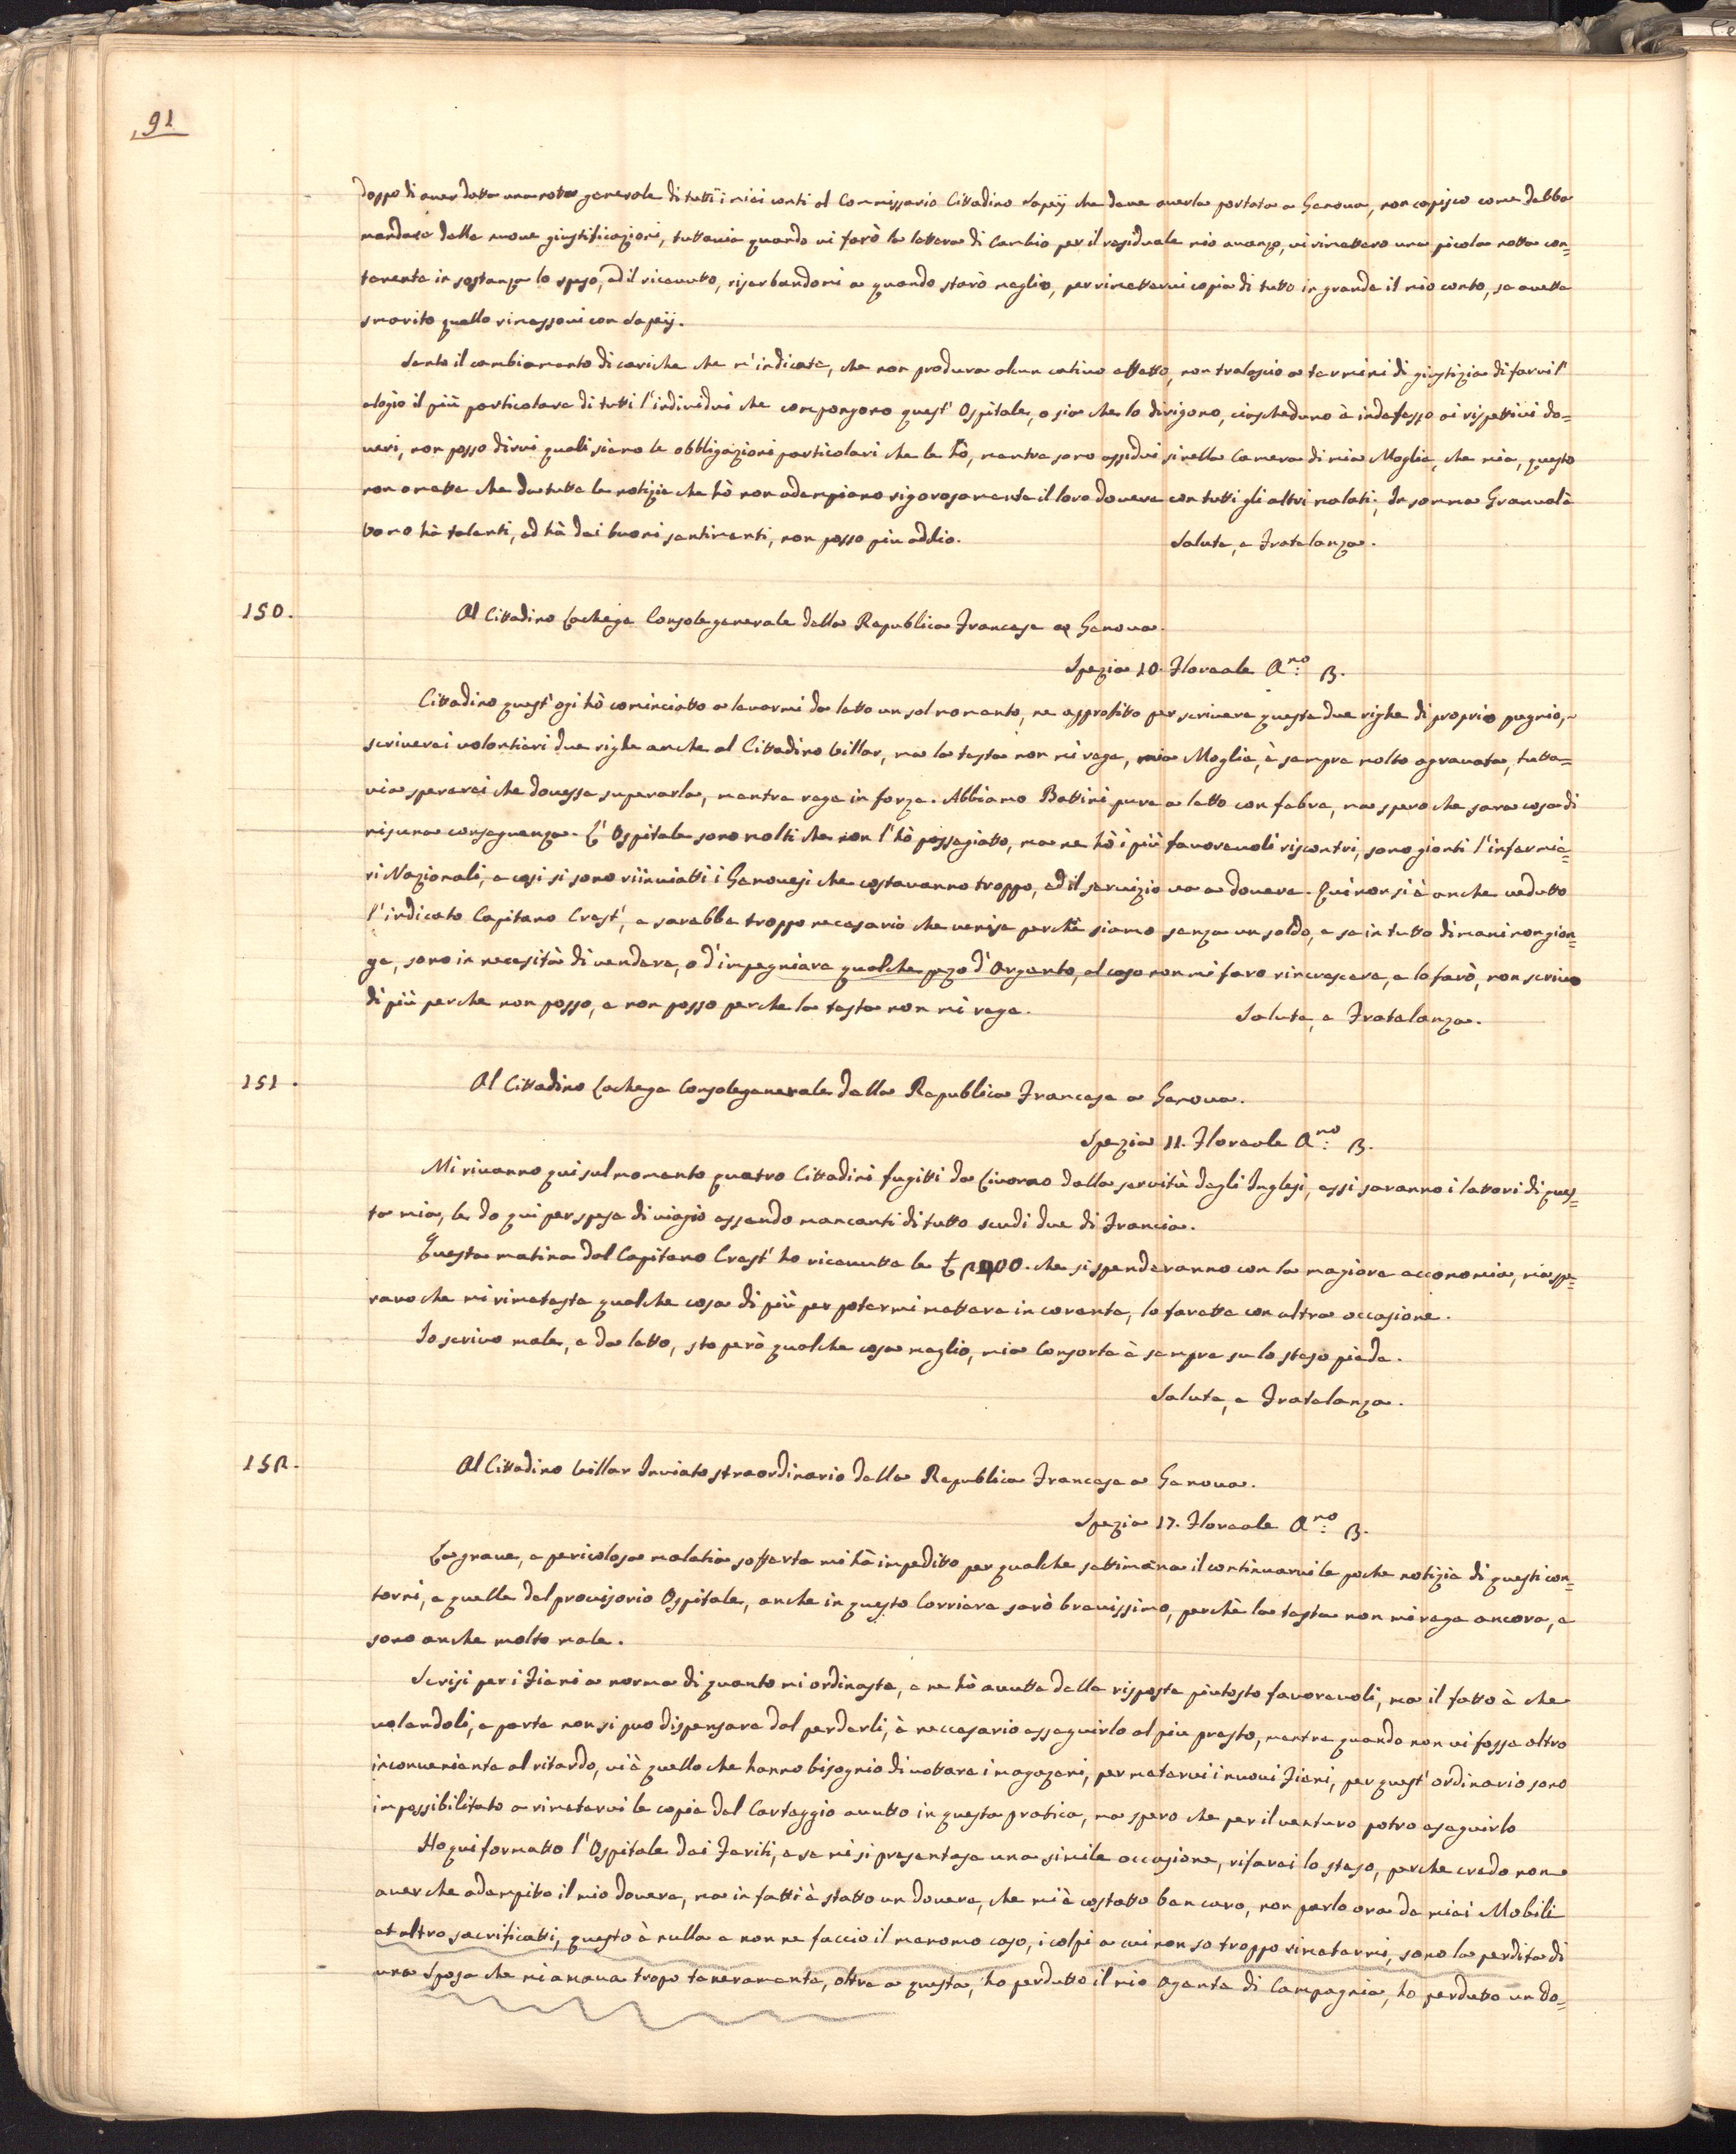 91
doppo di aver datta una notta generale di tutti i miei conti al Commissario Cittadino Sapeÿ che deve averla portata a Genova, non capisco come debba
mandare delle nuove giustificazioni, tuttavia quando vi farò la lettera di Cambio per il residuale mio avanzo, vi rimettero una picola notta con=
tenente in sostanza lo speso, ed il ricevutto, riserbandomi a quando starò meglio, per rimettervi copia di tutto in grande il mio conto, se avette
smarito quello rimessovi con Sapeÿ.
Sento il cambiamento di cariche che m'indicate, che non produra alcun cativo effetto, non tralascio a termini di giustizia di farvi l'
elogio il più particolare di tutti l'individui che compongono quest' Ospitale, o sia che lo dirigono, ciascheduno è indefesso ai rispettivi do=
veri, non posso dirvi quali siano le obbligazioni particolari che le hò, mentre sono assidui si nella Camera di mia Moglie, che mia, questo
non omette che da tutte le notizie che hò non adempiano rigorosamente il loro dovere con tutti gli altri malati; In somma Granvalè
Uomo hà talenti, ed hà dei buoni sentimenti, non posso più addio. Salute, e Fratelanza.
150. Al Cittadino Lachege Console generale della Republica Francese a Genova.
Spezia 10. Floreale Anno: 2.
Cittadino quest'ogi hò cominciatto a levarmi da letto un sol momento, ne approfitto per scrivere queste due righe di proprio pugnio,
scriverei volontieri due righe anche al Cittadino Villar, ma la testa non mi rege, mia Moglie, è sempre molto agravata, tutta=
via spererei che dovesse superarla, mentre rege in forze. Abbiamo Battini pure a letto con febre, ma spero che sara cosa di
nisuna conseguenza. L' Ospitale sono molti che non l'hò passegiatto, ma ne hò i più favorevoli riscontri, sono gionti l'infermie=
ri Nazionali, e così si sono riinviatti i Genovesi che costavanno troppo, ed il servizio va a dovere. Qui non si è anche vedutto
l'indicato Capitano Crest', e sarebbe troppo necesario che venise perchè siamo senza un soldo, e se in tutto dimani non gion=
ge, sono in necesità di vendere, o d'impegniare qualche pezo d'Argento, al caso non mi faro rincrescere, e lo farò, non scrivo
di più perche non posso, e non posso perche la testa non mi rege. Salute, e Fratelanza.
151. Al Cittadino Lachege Console generale della Republica Francese a Genova.
Spezia 11. Floreale Anno: 2.
Mi rivanno qui sul momento quatro Cittadini fugitti da Livorno dalla servitù degli Inglesi, essi saranno i lattori di ques=
ta mia, le do qui per spese di viagio essendo mancanti di tutto scudi due di Francia.
Questa matina dal Capitano Crest' ho ricevutte le che si spenderanno con la magiore acconomia, mi aspe=
ravo che mi rimeteste qualche cosa di più per potermi mettere in corente, lo farette con altra occasione.
Io scrivo male, e da letto, sto però qualche cosa meglio, mia Consorte è sempre su lo steso piede.
Salute, e Fratelanza.
152. Al Cittadino Villar Inviato straordinario della Republica Francese a Genova.
Spezia 17. Floreale Anno: 2.
La grave, e pericolosa malatia sofferta mi hà impeditto per qualche settimana il continuarvi le poche notizie di questi con=
torni, e quelle del provisorio Ospitale, anche in questo Corriere sarò brevissimo, perchè la testa non mi rege ancora, e
sono anche molto male.
Scrisi per i Fieni a norma di quanto mi ordinaste, e ne hò avutte delle risposte piutosto favorevoli, ma il fatto è che
volendoli, e parte non si puo dispensare dal perderli, è neccesario esseguirlo al piu presto, mentre quando non vi fosse altro
inconveniente al ritardo, vi è quello che hanno bisognio di vottare i magazeni, per metervi i nuovi Fieni, per quest' ordinario sono
impossibilitato a rimetervi le copie del Carteggio avutto in questa pratica, ma spero che per il venturo potro eseguirlo
Ho qui formatto l'Ospitale dei Feriti, e se mi si presentase una simile occasione, rifarei lo steso, perche credo non
aver che adempito il mio dovere, ma in fatti è statto un dovere, che mi è costatto ben caro, non parlo ora de miei Mobili
et altro sacrificatti, questo è nulla e non ne faccio il menomo caso, i colpi a cui non so troppo rimetermi, sono la perdita di
una Sposa che mi amava tropo teneramente, oltre a questa, ho perdutto il mio Agente di Campagnia, ho perdutto un do=